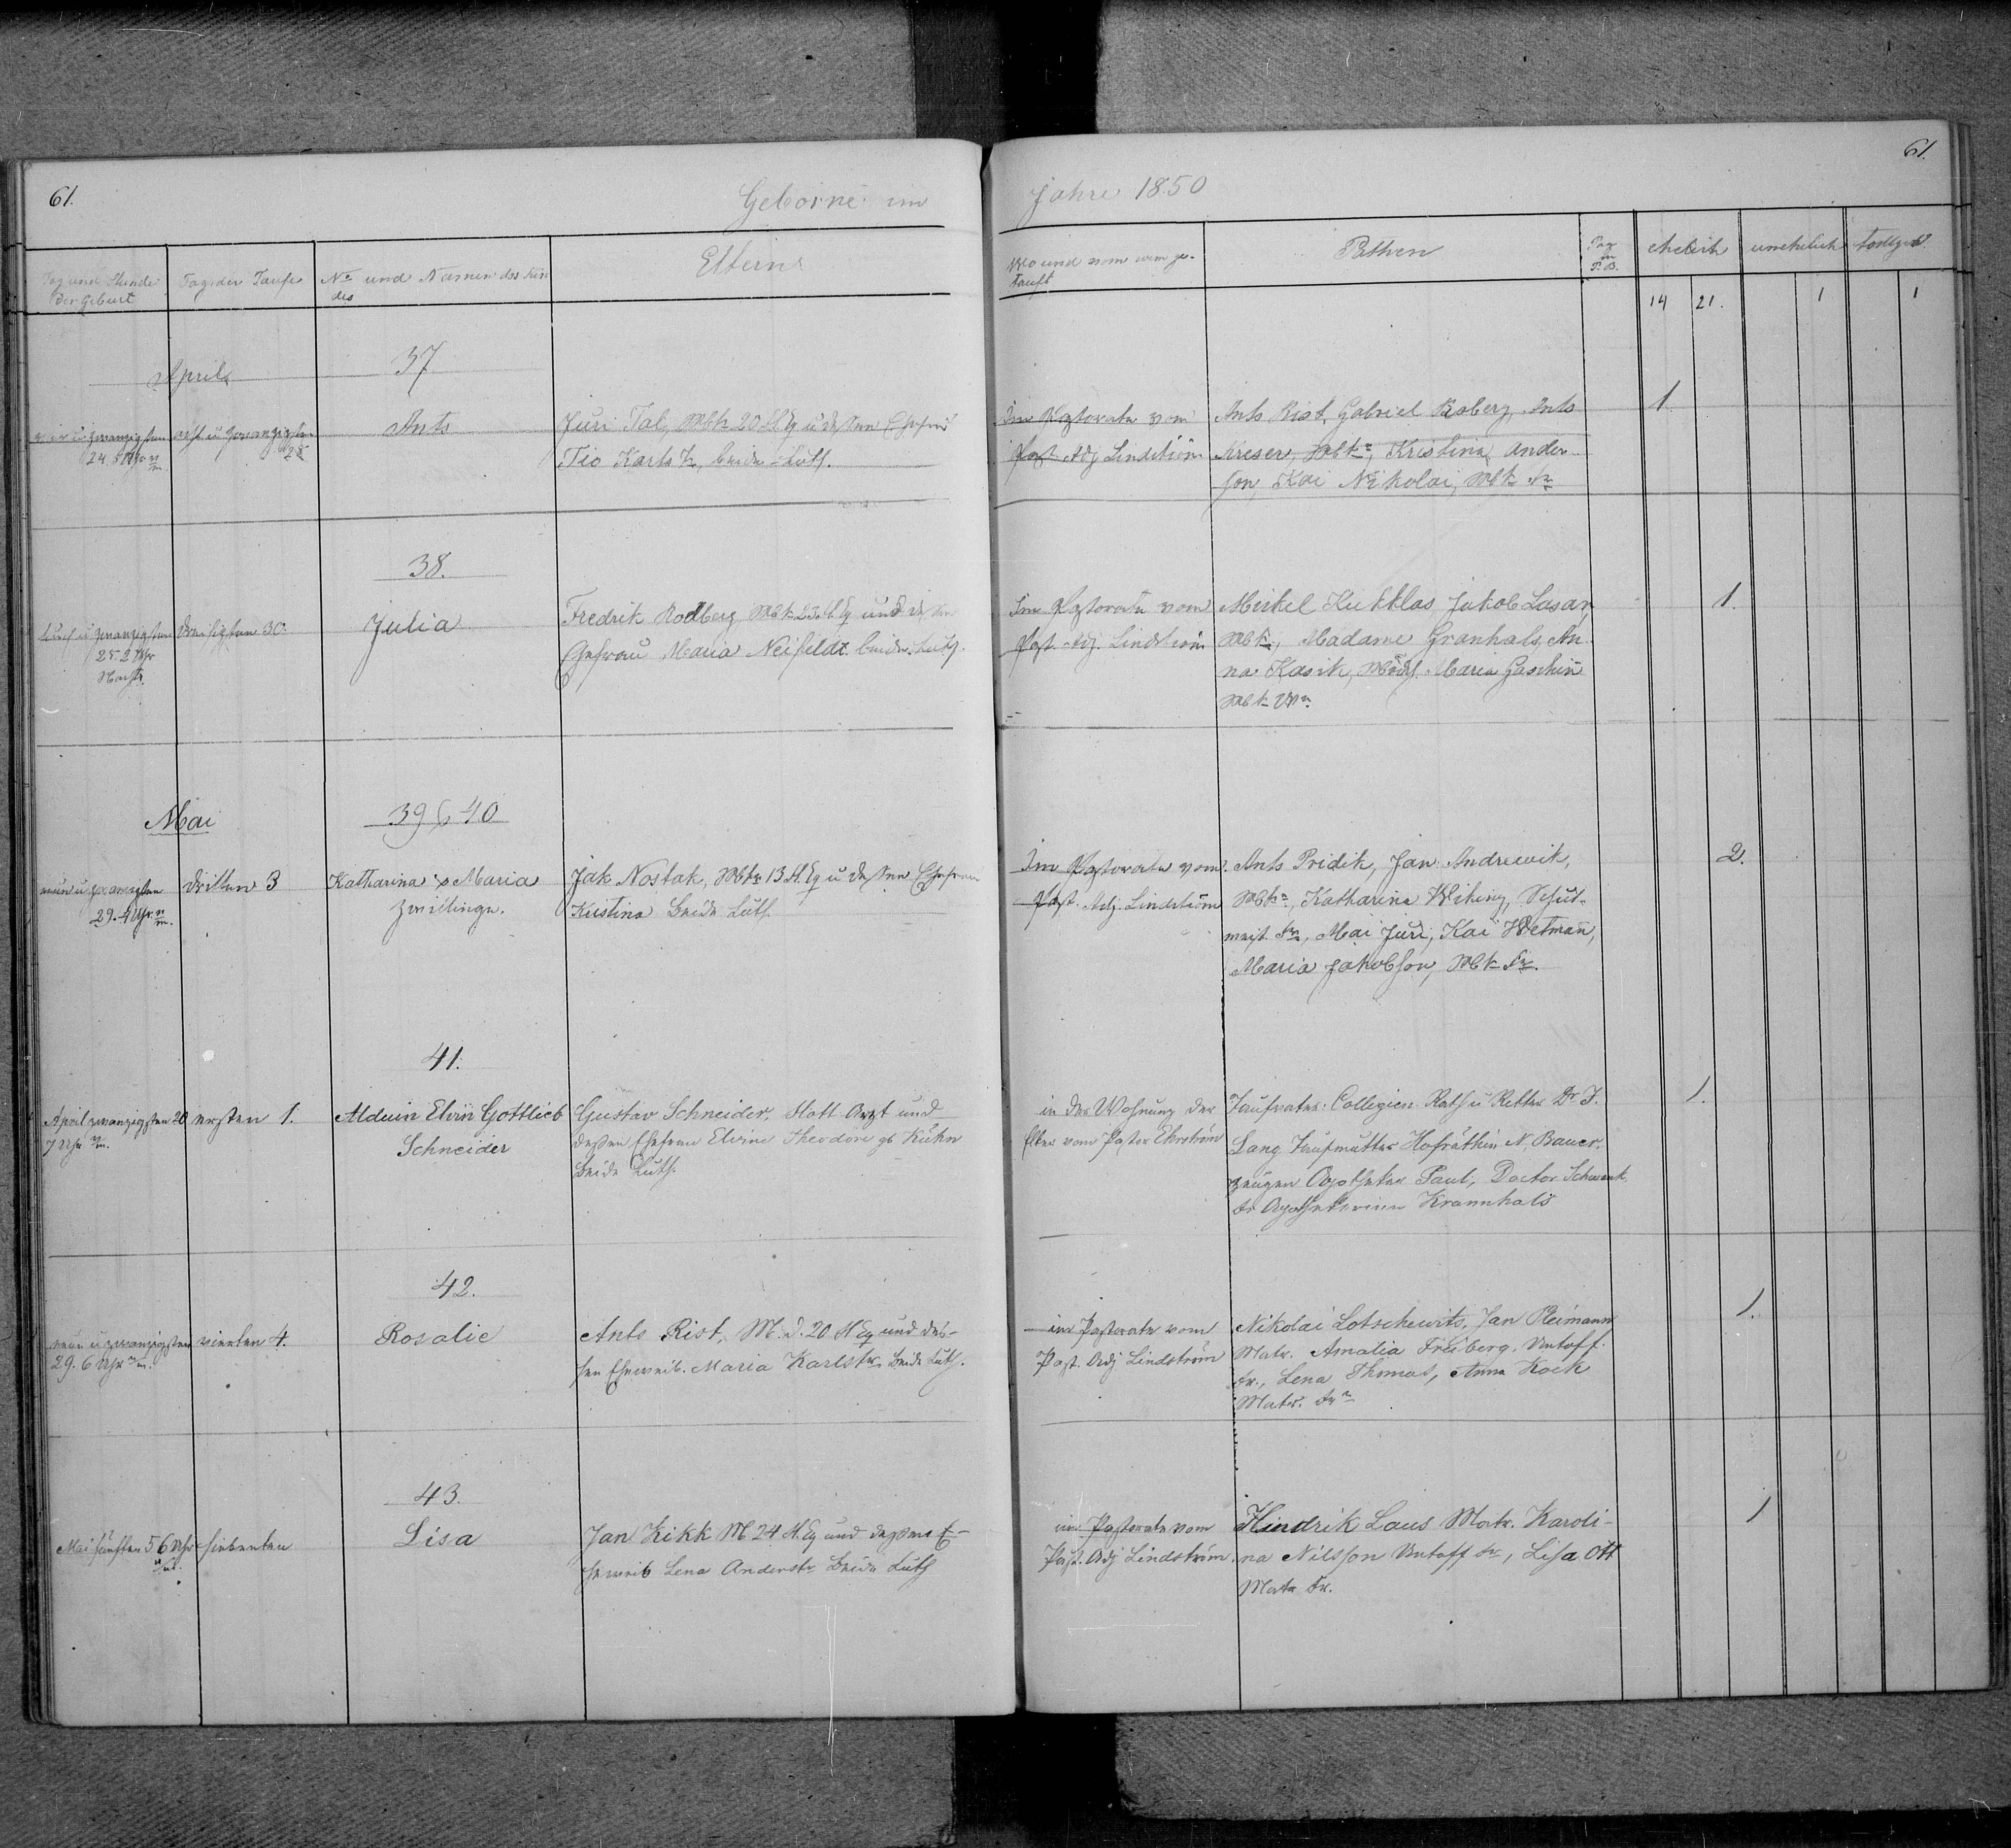 61.
Geborne im
Jahre 1850
61.
Tag und Stunde
der Geburt
Tag der Taufe
No und Namen des Kin
des
Eltern
Wo und vom wem ge-
tauft
Pathen
Pag
in
P.B.
ehelich
unehelich
todtgeb.
14
21.
1
1
April
37
vier u zwanzigsten
24. 5 Uhr
acht u zwanzigsten
28
Ants
Juri Tal, Mtr 20 Fl. Eq u dessen Ehefrau
Tio Karls Tr, beide Luth.
Im Pastorate vom
Past. Adj Lindström
Ants Rist, Gabriel Roberg, Ants
Kreser, Mtr, Kristina Ander-
son, Kai Nikolai, Mtr Fr
1
38.
fünf u zwanzigsten
25. 2 Uhr
Nachts.
dreißigsten 30.
Julia
Fredrik Rodberg Mtr 23 Fl. Eq und dessen
Ehefrau Maria Neifeldt beide Luth.
Im Pastorate vom
Past. Adj. Lindström
Mickel Kukklas, Jakob Lasar,
Mtr, Madame Granhals, An-
na Kasik, Maria Gaschin
1.
Mai
39 & 40
neun u zwanzigsten
29. 4 Uhr
dritten 3
Katharina & Maria
Zwillinge.
Jak Nostak, Mtr 13 Fl. Eq u dessen Ehefrau
Kristina Beide Luth.
Im Pastorate vom
Past. Adj. Lindström
Ants Pridik, Jan Andrewik,
Mtr, Katharina Wiking, Schul-
meist. Fr, Mai Juri, Kai Wetmann,
Maria Jakobson, Mtr Fr.
2.
41.
April zwanzigsten 20
7 Uhr
ersten 1.
Alduin Elvin Gottlieb
Schneider
Gustav Schneider, Flott Arzt und
dessen Ehefrau Elvine Theodore gb Kühn
Beide Luth.
in der Wohnung der
Elter vom Pastor Ehrström
Taufvater: Collegien Rath u Ritter Dr J.
Lang Taufmutter Hofräthin N. Bauer.
Zeugen Apotheker Paul, Doctor Schwenk
Apothekerin Krannhals
1.
42.
neun u zwanzigsten
29. 6 Uhr
vierten 4.
Rosalie
Ants Rist, M. d. 20 Fl Eq und des-
sen Eheweib. Maria Karlstr. Beide Luth.
im Pastorate vom
Past. Adj Lindström
Nikolai Lotschewits, Jan Reimann
Matr. Amalia Freiberg, Untoff.
Fr., Lena Thomas, Anna Kock
Matr. Fr
1.
43.
Mai fünften 5 6 Uhr
siebenten
Lisa
Jan Kikk M 24 Fl. Eq und dessen E-
heweib Lena Anderstr Beide Luth
im Pastorate vom
Past. Adj Lindström
Hindrik Laus Matr. Karoli-
na Nilsson Untoff Fr, Lisa Ott
Matr Fr.
1